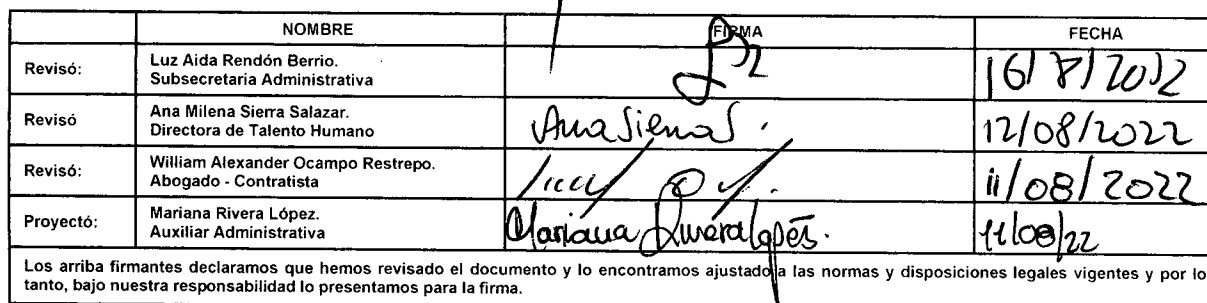 NOMBRE FIRMA FECHA
Revisó: Luz Aida Rendón Berrio.
Subsecretaria Administrativa 16/8/2022
Revisó Ana Milena Sierra Salazar.
Directora de Talento Humano Ana Sierra S. 12/08/2022
Revisó: William Alexander Ocampo Restrepo.
Abogado - Contratista 11/08/2022
Proyectó: Mariana Rivera López.
Auxiliar Administrativa Mariana Rivera López. 11/08/22
Los arriba firmantes declaramos que hemos revisado el documento y lo encontramos ajustado a las normas y disposiciones legales vigentes y por lo
tanto, bajo nuestra responsabilidad lo presentamos para la firma.